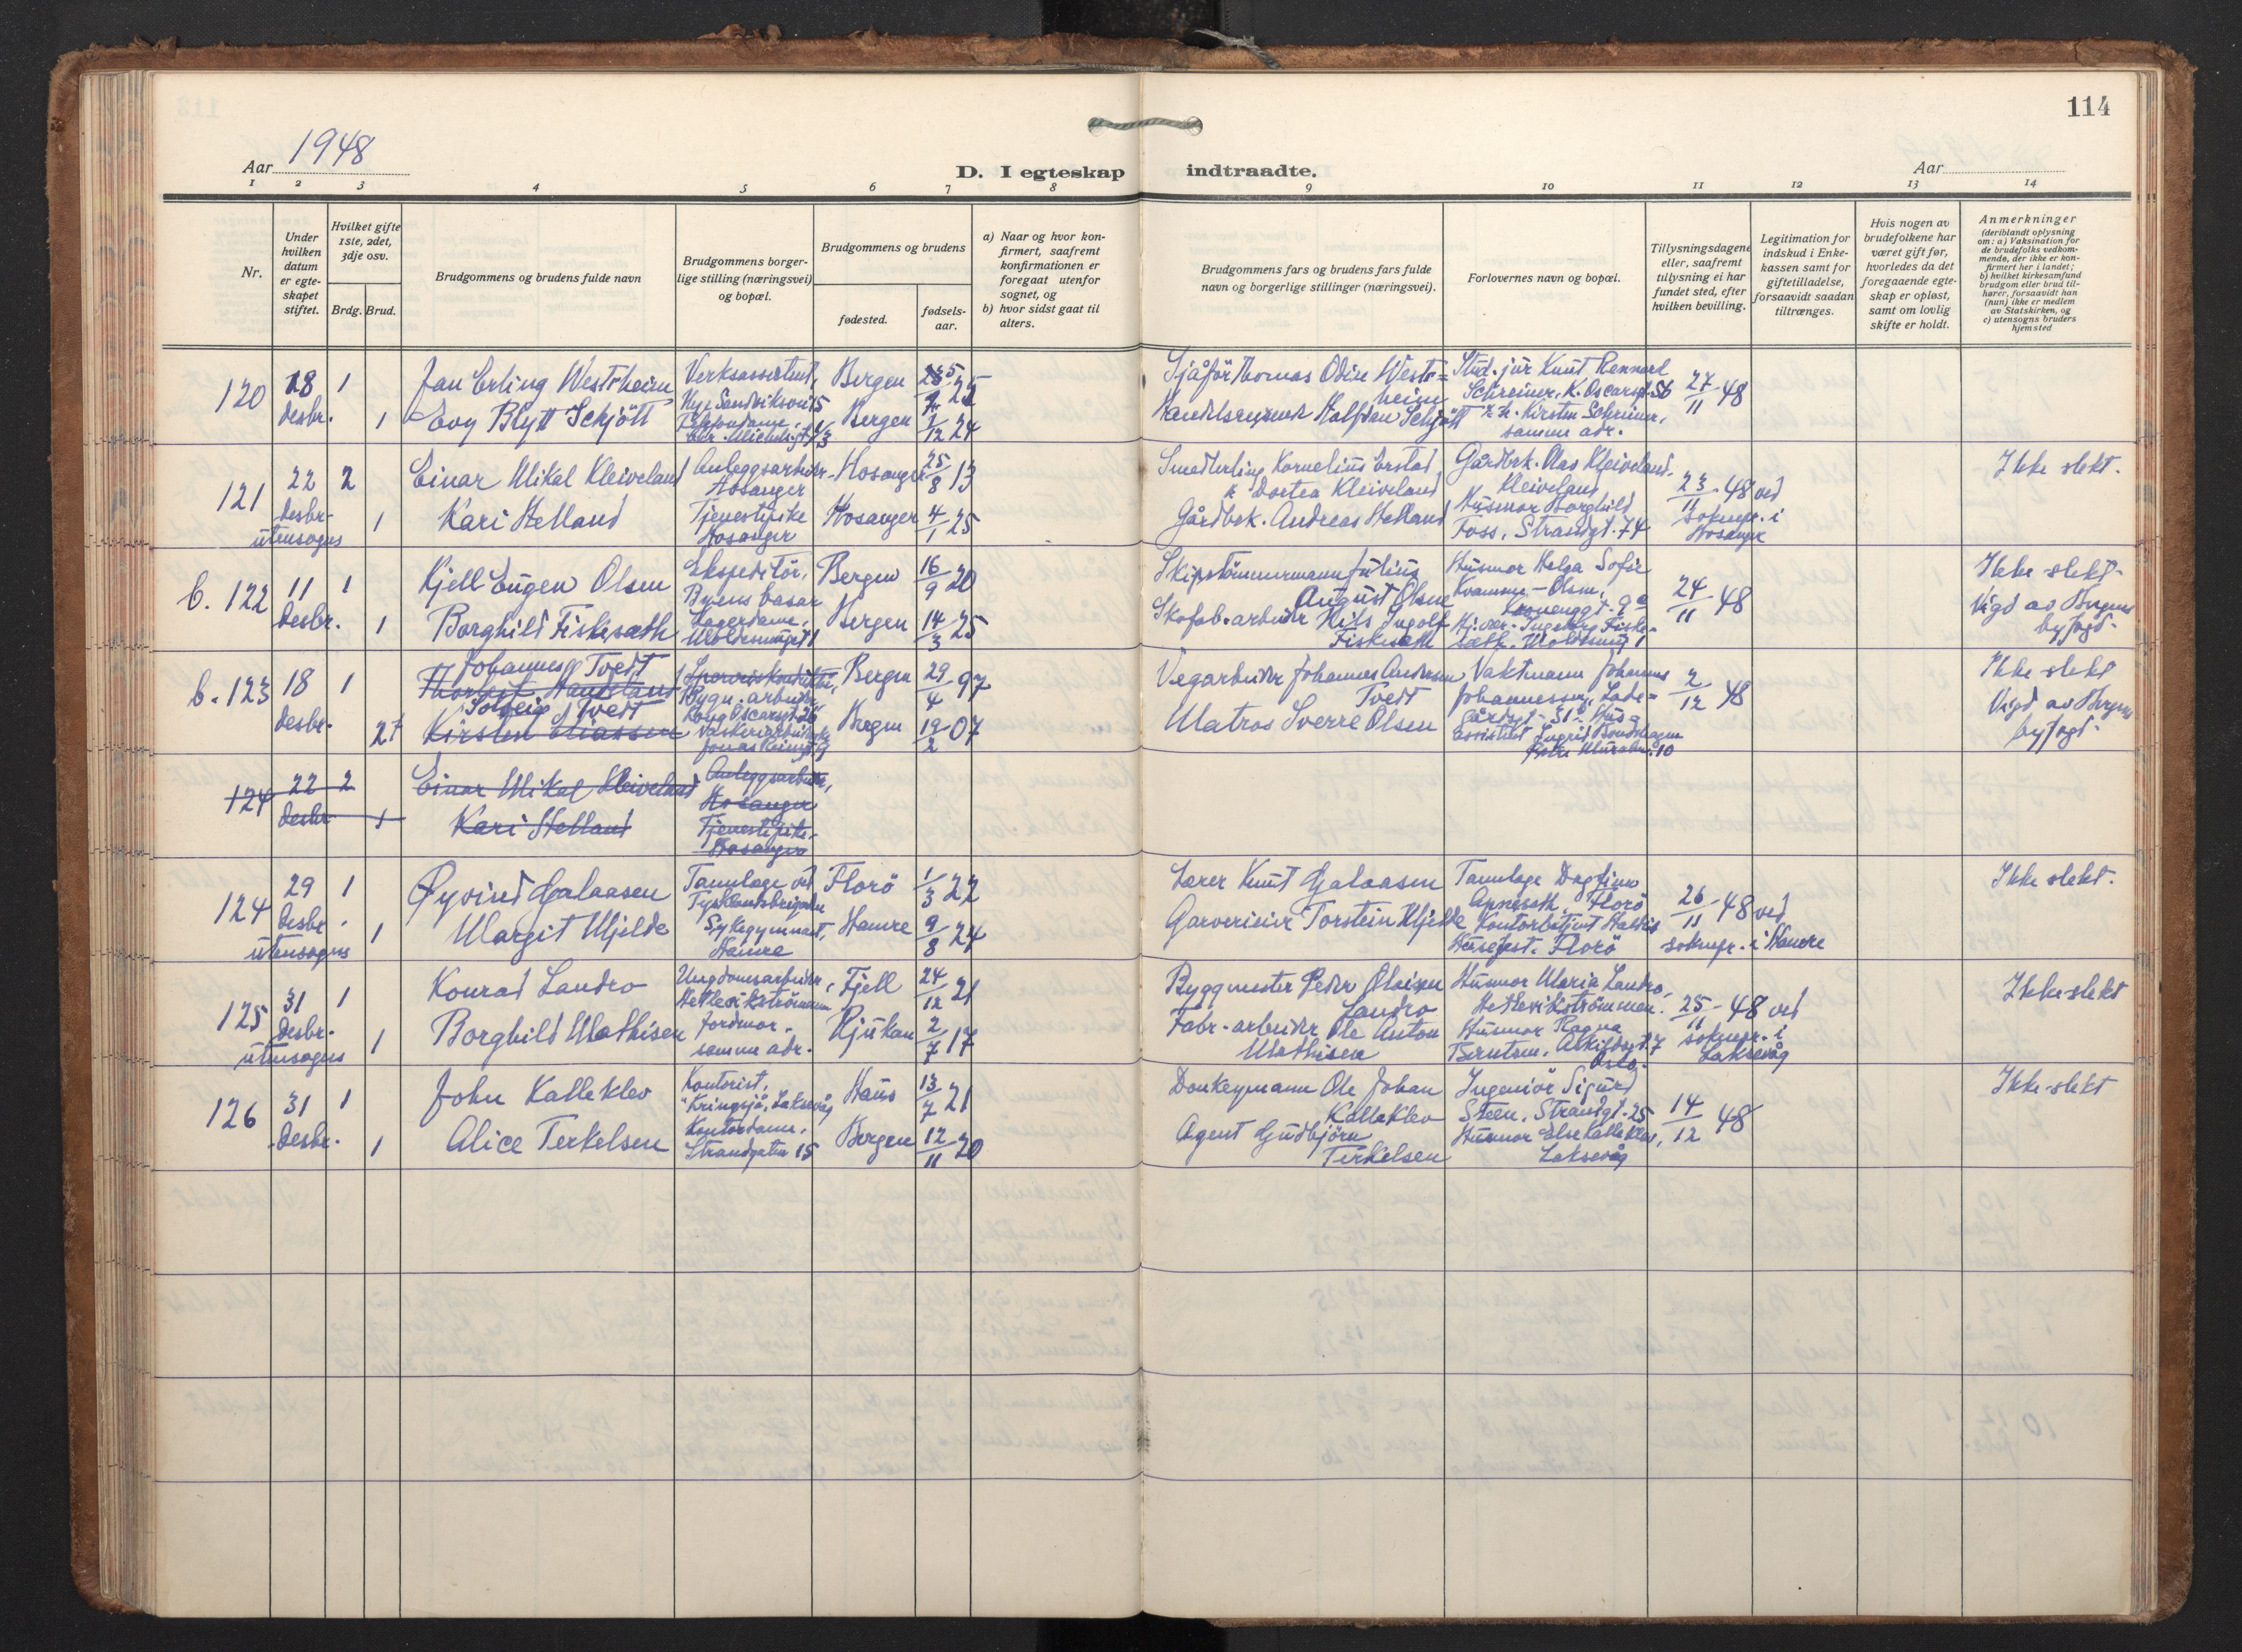 114
Aar 1948
D. I egteskap indtraadte.
Aar
1 2 3 4 5 6 7 8 9 10 11 12 13 14
Nr.
Under
hvilken
datum
er egte-
skapet
stiftet.
Hvilket gifte
1ste, 2det,
3dje osv.
Brdg. Brud.
Brudgommens og brudens fulde navn
Brudgommens borger-
lige stilling (næringsvei)
og bopæl.
Brudgommens og brudens
fødested.
fødsels-
aar.
a) Naar og hvor kon-
firmert, saafremt
konfirmationen er
foregaat utenfor
sognet, og
b) hvor sidst gaat til
alters.
Brudgommens fars og brudens fars fulde
navn og borgerlige stillinger (næringsvei).
Forlovernes navn og bopæl.
Tillysningsdagene
eller, saafremt
tillysning ei har
fundet sted, efter
hvilken bevilling.
Legitimation for
indskud i Enke-
kassen samt for
giftetilladelse,
forsaavidt saadan
tiltrænges.
Hvis nogen av
brudefolkene har
været gift før,
hvorledes da det
foregaaende egte-
skap er opløst,
samt om lovlig
skifte er holdt.
Anmerkninger
(deriblandt oplysning
om: a) Vaksination for
de brudefolks vedkom-
mende, der ikke er kon-
firmert her i landet;
b) hvilket kirkesamfund
brudgom eller brud til-
hører, forsaavidt han
(hun) ikke er medlem
av Statskirken, og
c) utensogns bruders
hjemsted
120
18
desbr.
1
1
Jan Erling Westrheim
Evy Blytt Schjött
Verksassistent,
Nye Sandviksvei 15
Telefondame,
Bergen
Bergen
25
1/12 24
Sjåför Thomas Odin Westr=
heim
Handelsagent Halfdan Schjött
Stud. jur Knut Rennord
Schreiner, K. Oscarsgt. 56
Kirsten Schreiner,
samme adr.
27/11 48
121
22
desbr.
utensogns
2
1
Einar Mikal Kleiveland
Kari Helland
Anleggsarbeider
Hosanger
Tjenestepike
Hosanger
Hosanger
Hosanger
25/8 13
4/1 25
Smedlerling Kornelius Erstad
& Dortea Kleiveland
Gårdbrk. Andreas Helland
Gårdbrk. Olas Kleiveland,
Kleiveland
Husmor Borghild
Foss, Strandgt. 74
23/11 48 ved
soknepr. i
Hosanger
Ikke slekt.
b. 122
11
desbr.
1
1
Kjell Eugen Olsen
Borghild Fiskeseth
Ekspeditör,
Byens basar
Lagerdame,
Bergen
Bergen
16/9 20
14/3 25
Skipstömmermann Julius
August Olsen
Skofab. arbeider Nils Ingolf
Fiskeseth
Husmor Helga Sofie
Kvamme-Olsen,
Ingeborg Fiske-
seth,
24/11 48
Ikke slekt.
Vigd av Bergens
byfogd.
b. 123
18
desbr.
1
2f
Johannes Tvedt
Solveig Tvedt
Kirsten Eliassen
Bygn. arbeider,
Kong Oscarsgt 26
Vaskeriarbeiderske
Jonas Reinsgt 9
Bergen
Bergen
29/4 97
19/2 07
Vegarbeider Johannes Andersen
Tvedt
Matros Sverre Olsen
Vaktmann Johannes
Johannessen, Lade=
gårdsgt. 31 b. Hus
assistent Ingrid Bondehagen
Øvre Muralm. 10
2/12 48
Ikke slekt
Vigd av Bergens
byfogd.
124
22
desbr
2
1
Einar Mikal Kleiveland
Kari Helland
Anleggsarbeider,
Hosanger
Tjenestepike
Hosanger
124
29
desbr.
utensogns
1
1
Øyvind Galaasen
Margit Mjelde
Tannlege ved
Tysklandsbrigaden
Sykegymnast,
Hamre
Florö
Hamre
1/3 22
9/8 24
Lærer Knut Galaasen
Garverieier Torstein Mjelde
Tannlege Dagfinn
Apneseth, Florö
Kontorbetjent Haldis
Husefest, Florö
26/11 48 ved
soknepr. i Hamre
Ikke slekt.
125
31
desbr.
utensogns
1
1
Konrad Landro
Borghild Mathisen
Ungdomsarbeider,
Hetlevikströmmen
Jordmor,
samme adr.
Fjell
Rjukan
24/12 21
2/7 17
Byggmester Peder Olaisen
Landro
Fabr. arbeider Ole Anton
Mathisen
Husmor Maria Landro,
Hetlevikströmmen.
Husmor Ragna
Berntsen, 7
Oslo.
25/11 48 ved
soknepr. i
Laksevåg
Ikke slekt
126
31
desbr.
1
1
John Kalleklev
Alice Terkelsen
Kontorist,
"Kringsjå, Laksevåg
Kontordame,
Strandgaten 15
Haus
Bergen
13/7 21
12/11 20
Donkeymann Ole Johan
Kalleklev
Agent Gudbjörn
Terkelsen
Ingeniör Sigurd
Steen, Strandgt. 25
Husmor Else Kalleklev,
Laksevåg
14/12 48
Ikke slekt